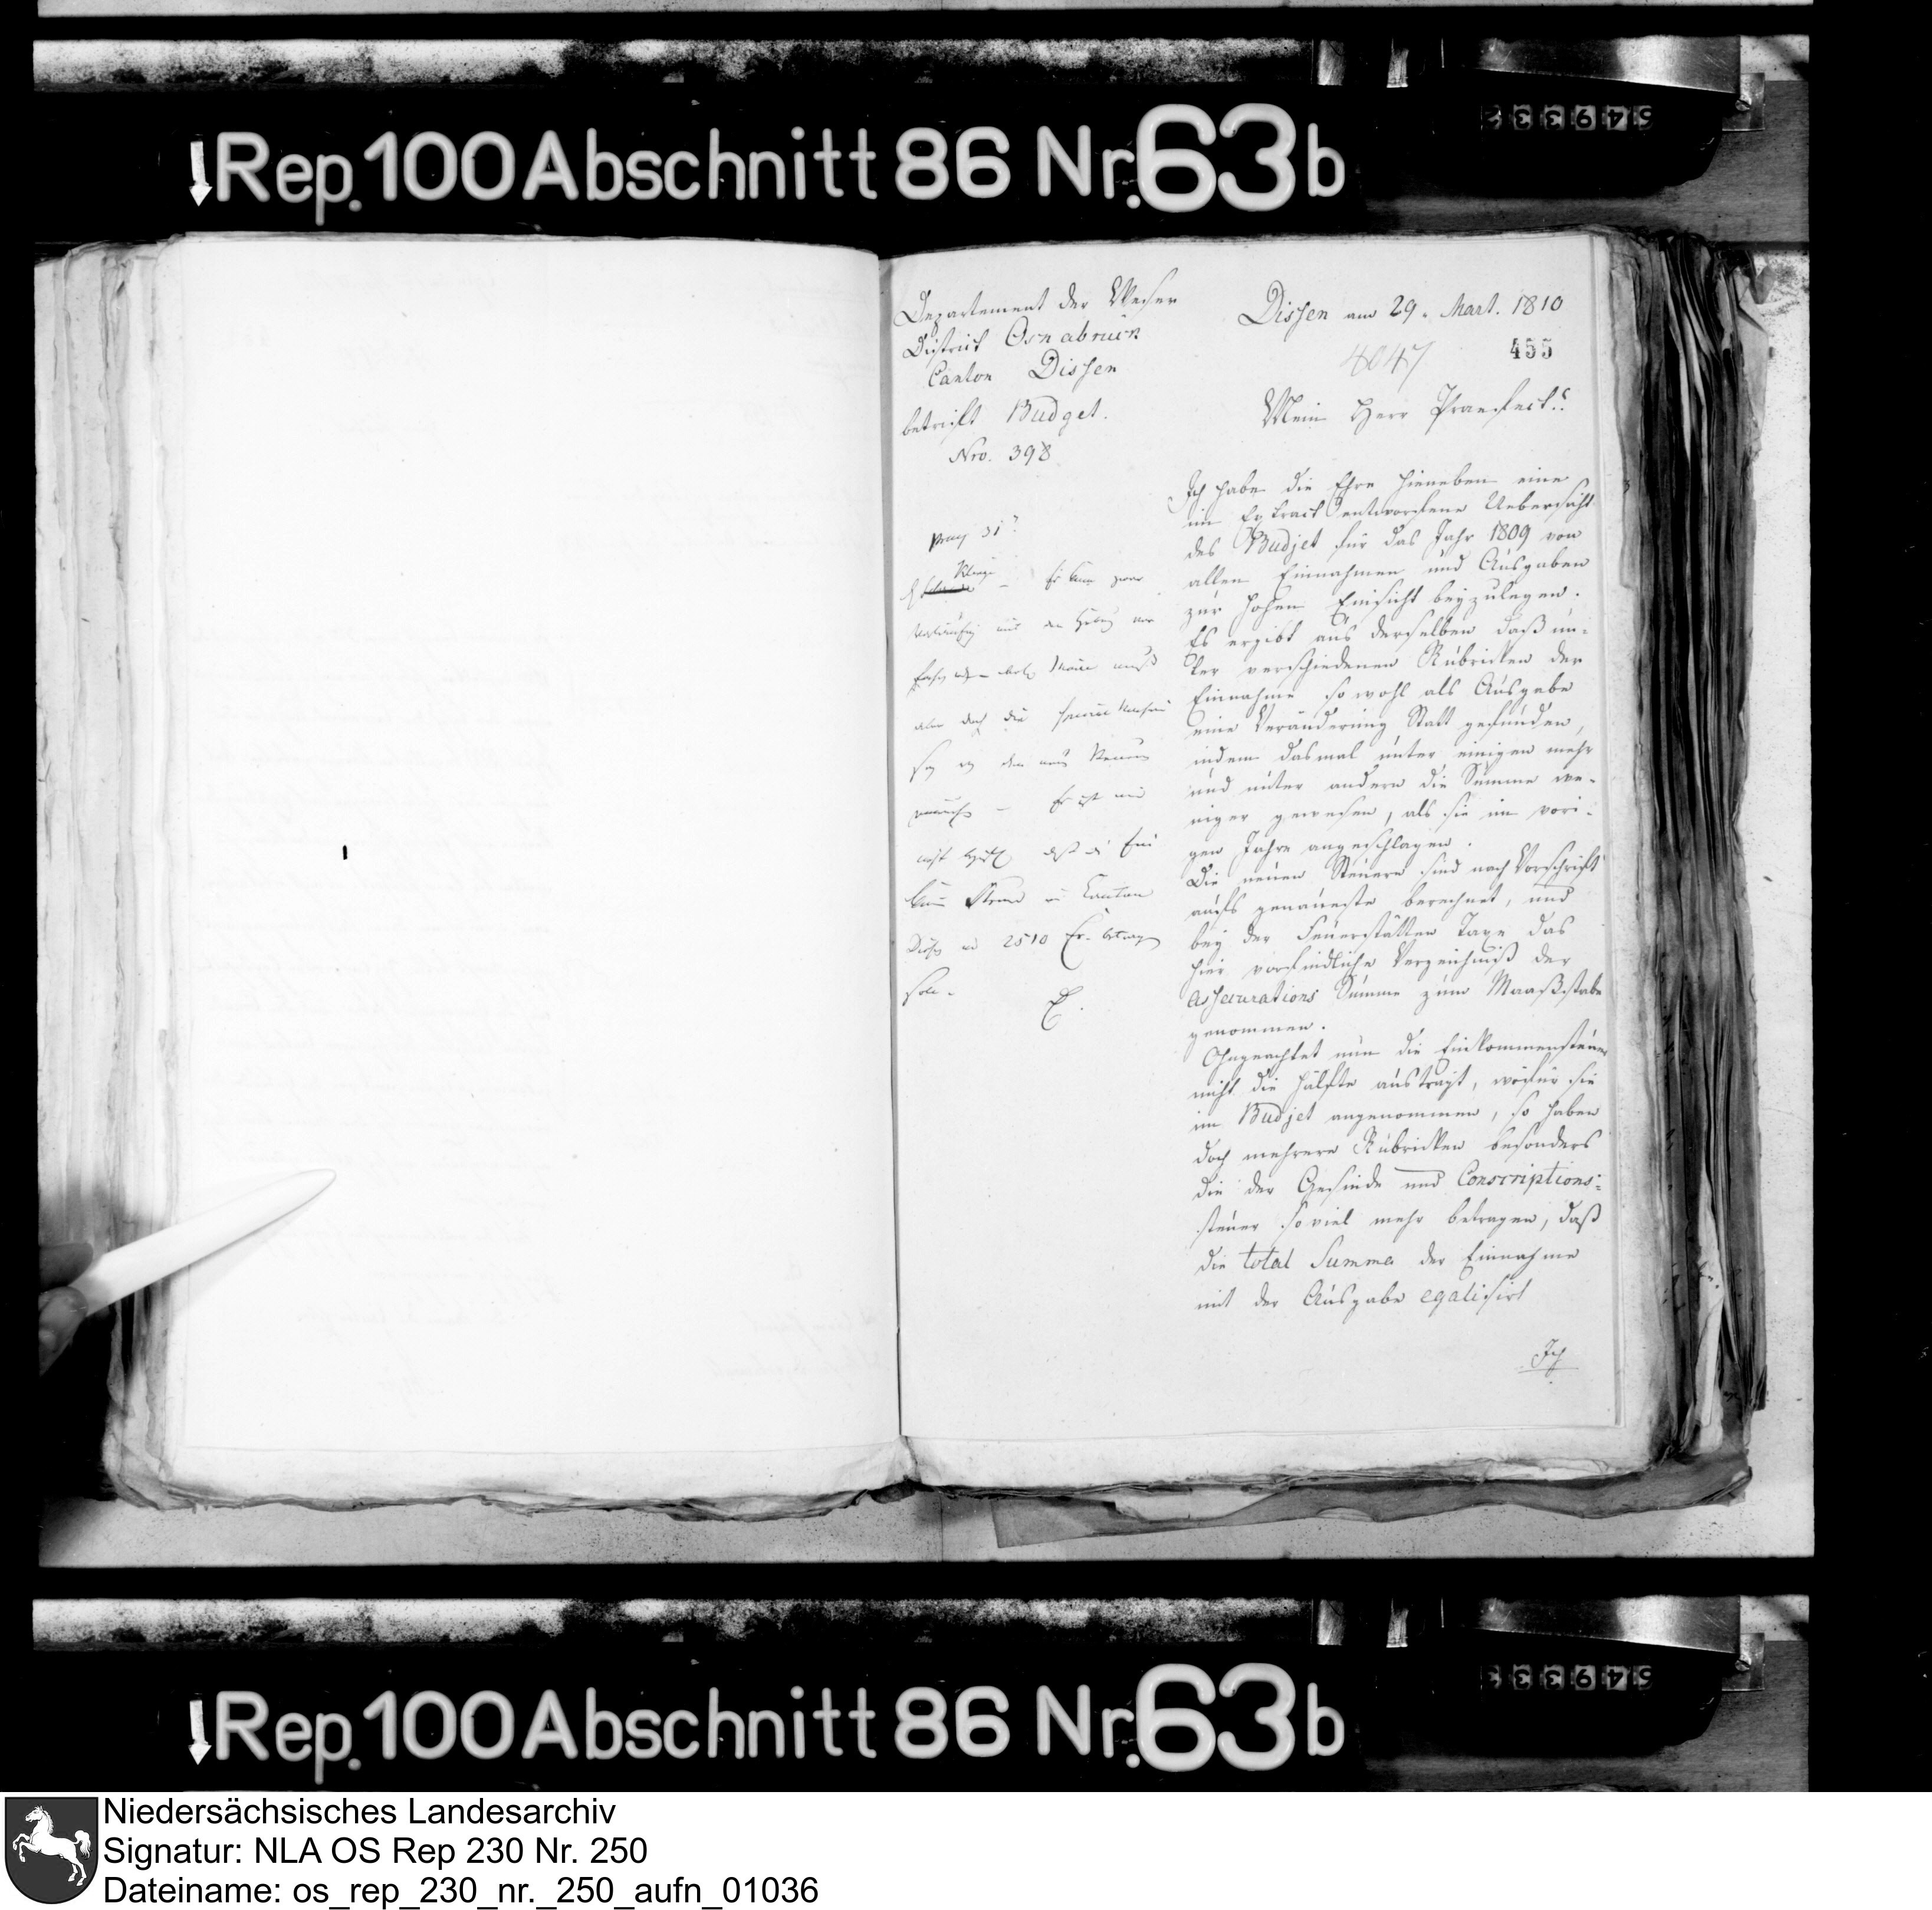 Rep. 100 Abschnitt 86 Nr. 63 b
Departement der Weser
District Osnabrück
Canton Dissen
betrifft Budget.
Nro. 398
Dissen am 29. Mart. 1810
4047
455
Mein Herr Praefect!
Ich habe die Ehre hieneben eine
im Extract entworfene Uebersicht
des Budjet für das Jahr 1809 von
allen Einnahmen und Ausgaben
zur hohen Einsicht beyzulegen.
Es ergibt aus derselben daß un-
ter verschiedenen Rubricken der
Einnahme sowohl als Ausgabe
eine Veränderung Statt gefunden,
indem dasmal unter einigen mehr
und unter andern die Summe we-
niger gewesen, als sie im vori-
gen Jahre angeschlagen.
Die neuen Steuern sind nach Vorschrift
aufs genaueste berechnet, und
bey der Feuerstätten Taxe das
hier vorfindliche Verzeichniß der
Assecurations Summe zum Maaßstabe
genommen.
Ohngeachtet nun die Einkommensteuer
nicht die Hälfte austrägt, wofür sie
im Budjet angenommen, so haben
doch mehrere Rubricken besonders
die der Gesinde und Conscriptions-
steuer so viel mehr betragen, daß
die total Summa der Einnahme
mit der Ausgabe egalisirt
Ich
31
Er kann zwar
aber doch die
Er ist mir
Canton
2510 Fr. betragen
solle.
Rep. 100 Abschnitt 86 Nr. 63 b
Niedersächsisches Landesarchiv
Signatur: NLA OS Rep 230 Nr. 250
Dateiname: os_rep_230_nr._250_aufn_01036